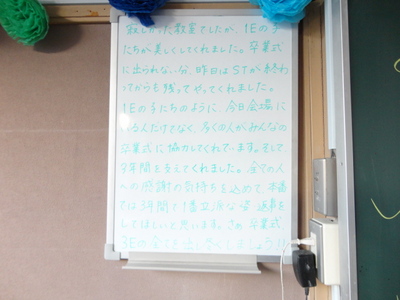 寂しかった教室でしたが、1Eの子
たちが美しくしてくれました。卒業式
に出られない分、昨日はSTが終わっ
てからも残ってやってくれました。
1Eの子たちのように、今日会場に
いる人だけでなく、多くの人がみんなの
卒業式に協力してくれています。そして
3年間を支えてくれました。全ての人
への感謝の気持ちを込めて、本番
では3年間で1番立派な姿、返事を
してほしいと思います。さあ、卒業式
3Eの全てを出し尽くしましょう!!